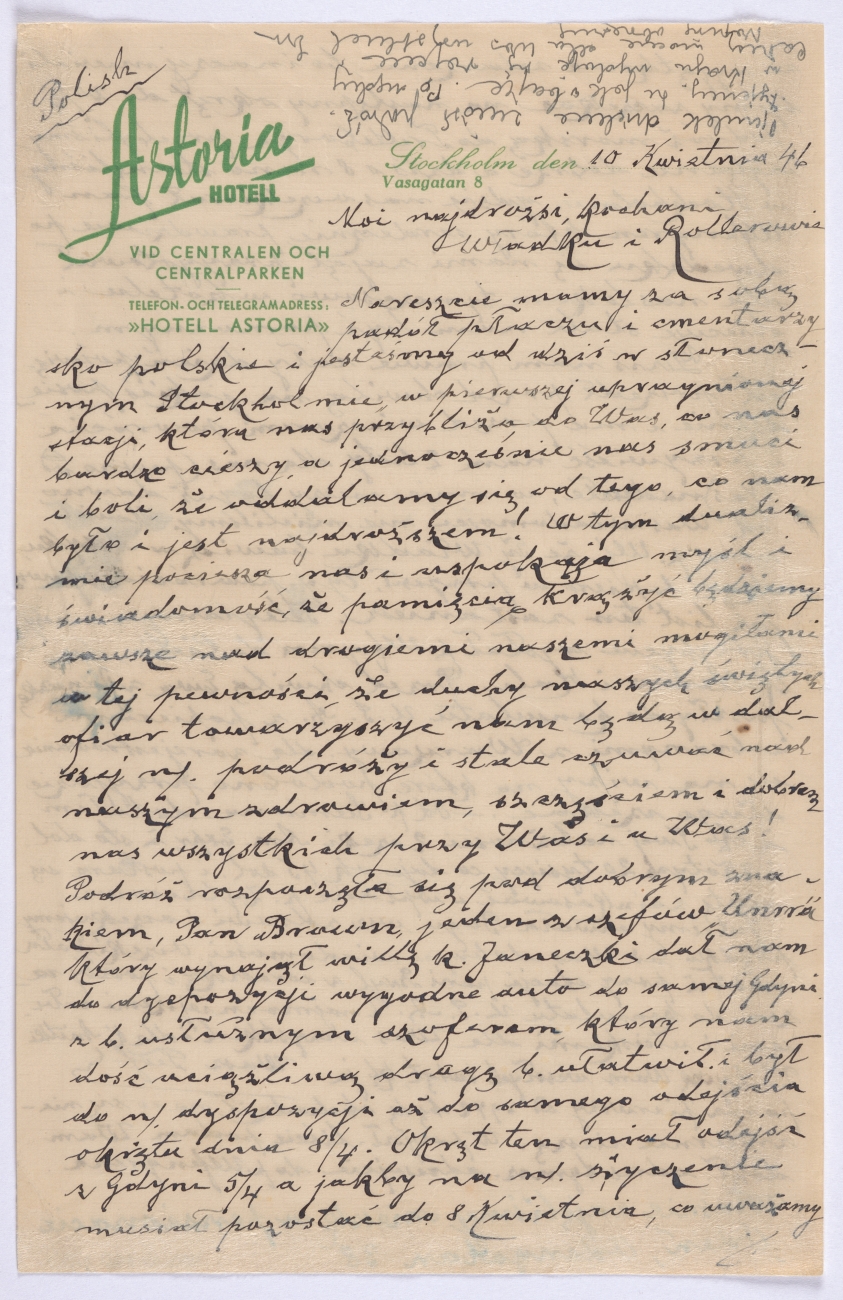 Polish
Astoria
HOTELL
VID CENTRALEN OCH
CENTRALPARKEN
TELEFON- OCH TELEGRAMADRESS:
»HOTELL ASTORIA»
Stockholm den 10 Kwietnia 46
Vasagatan 8
Moi najdrożsi, kochani
Władku i Rollerowie
Nareszcie mamy za sobą
padół płaczu i cmentarzy
sko polskie i jesteśmy od dziś w słonecz-
nym Stockholmie, w pierwszej upragnionej
stacji, która nas przybliża do Was, co nas
bardzo cieszy, a jednocześnie nas smuci
i boli, że oddalamy się od tego, co nam
było i jest najdroższem! W tym dualiz-
mie pociesza nas i uspokaja myśl i
świadomość, że pamięcią krążyć będziemy
zawsze nad drogiemi naszemi mogiłami
w tej pewności, że duchy naszych świętych
ofiar towarzyszyć nam będą w dal-
szej n/. podróży i stale czuwać nad
naszym zdrowiem, szczęściem i dobrem
nas wszystkich przy Was i u Was!
Podróż rozpoczęła się pod dobrym zna-
kiem, Pan Brown, jeden z szefów "Unrra"
który wynajął willę k. Janeczki dał nam
do dyspozycji wygodne auto do samej Gdyni
z b. usłużnym szoferem, który nam
dość uciążliwą drogę b. ułatwił i był
do n/. dyspozycji aż do samego odejścia
okrętu dnia 8/4. Okręt ten miał odejść
z Gdyni 5/4 a jakby na n/. życzenie
musiał pozostać do 8 Kwietnia, co uważamy
dzielnie zniósł podróż.